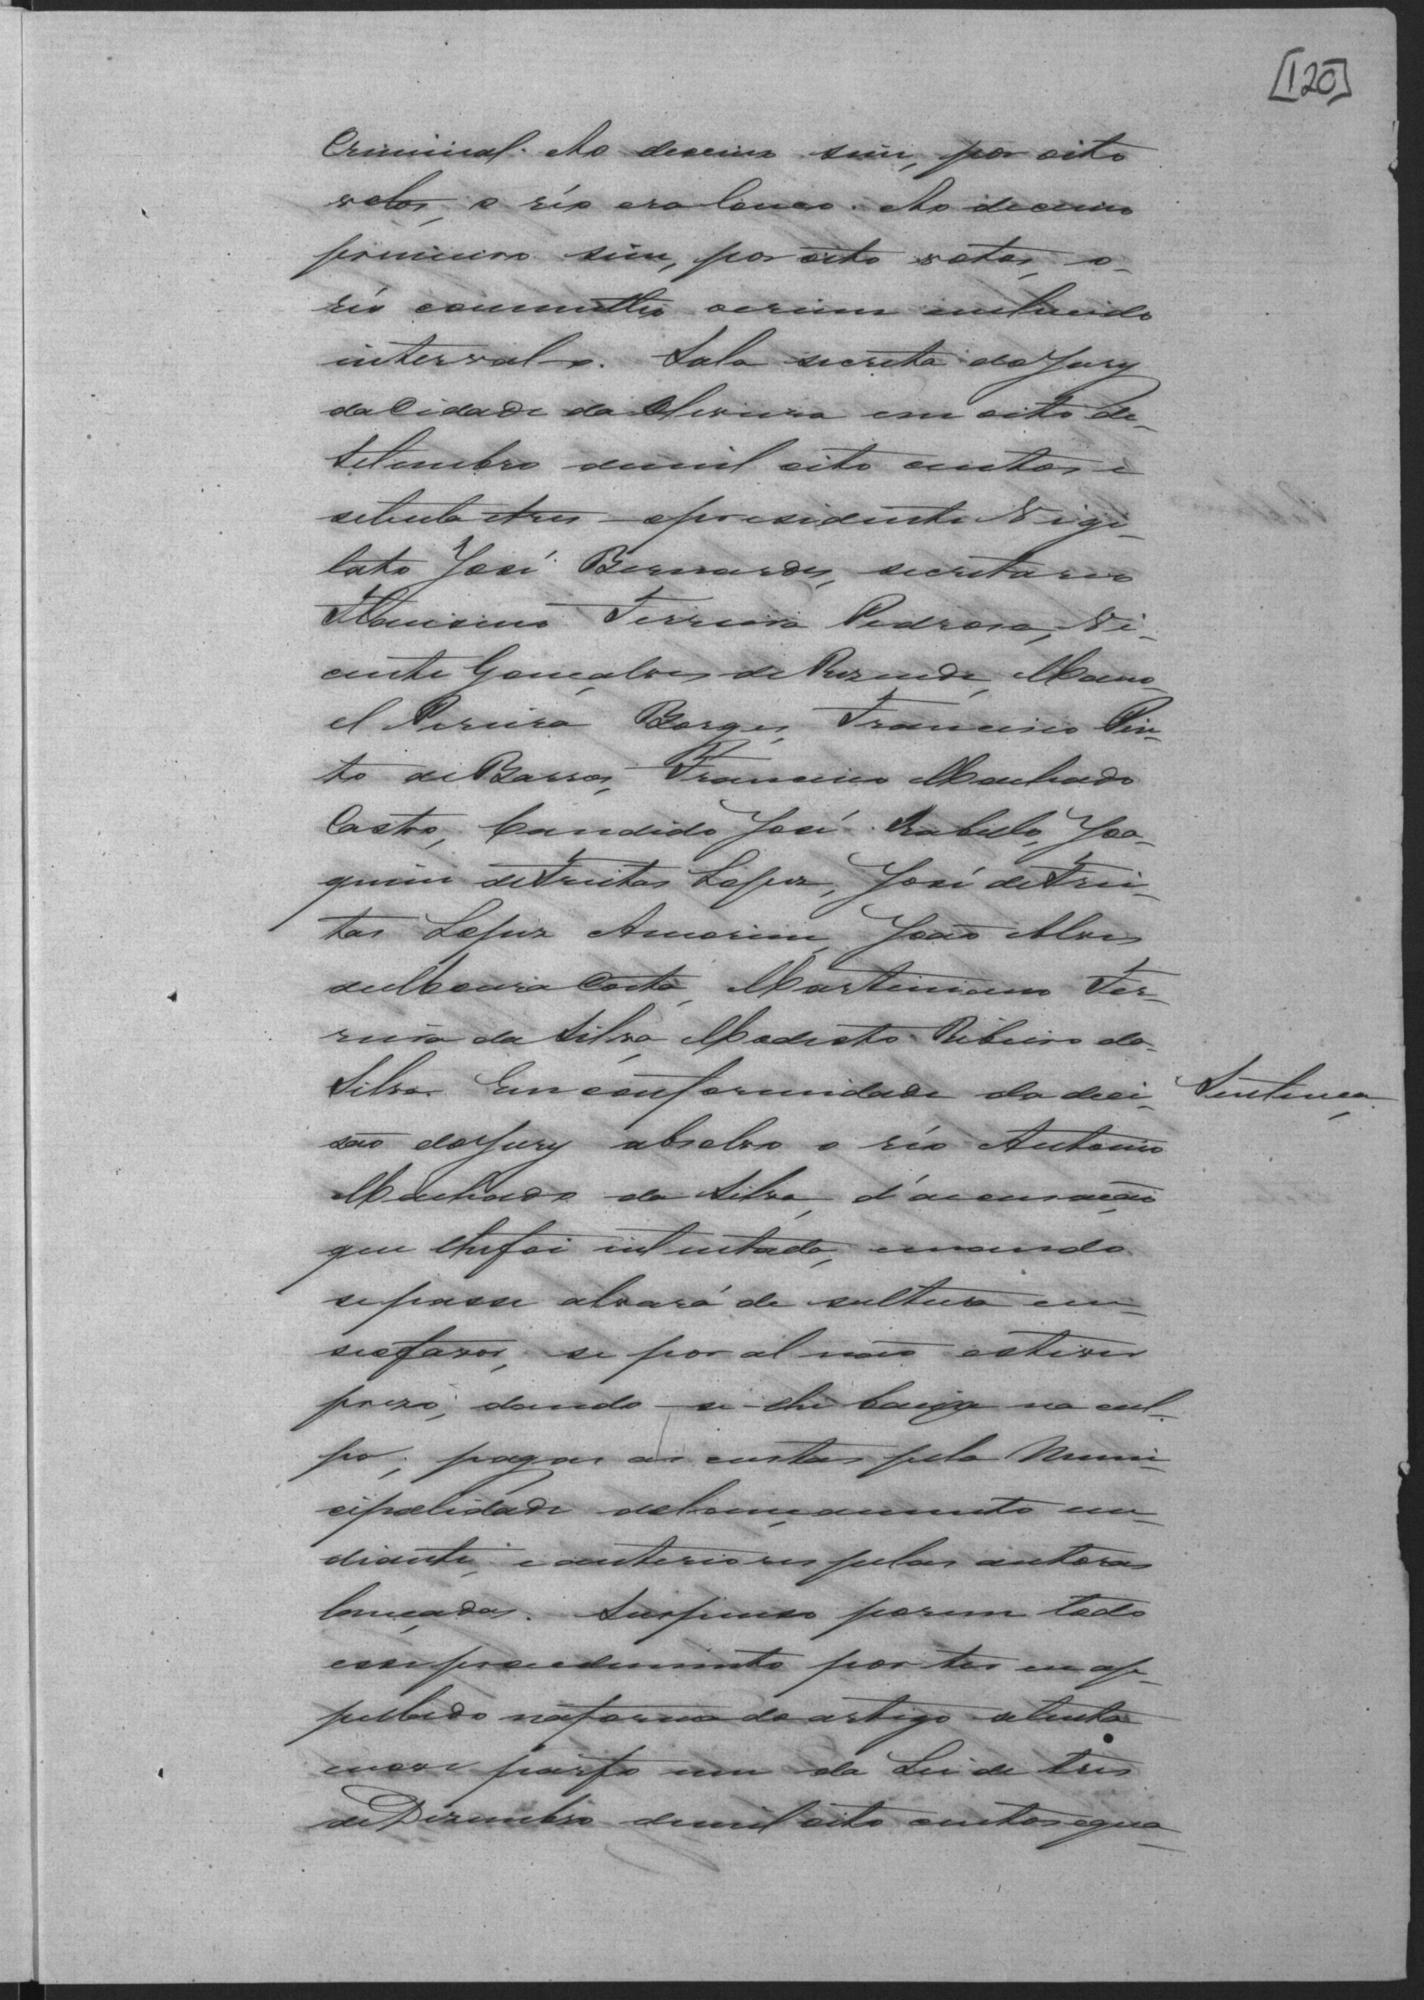 [120]
Criminal. Ao decimo sim, por oito
votos, o réo era louco. Ao decimo
primeiro sim, por oito votos, o
réo commetteo ocrime em lucido
intervalo. Sala secreta do Jury
da Cidade da Oliveira em oito de
Setembro demil oito centos e
setenta etres opresidente Vigi-
lato José Bernardes, secretario
Ferreira Pedrosa, Vi-
cente Gonçalves de Rezende, Mano-
el Pereira Borges, Francisco Pin-
to de Barros, Francisco Machado
Castro, Candido José Rabello, Joa-
quim de Freitas Lopes, José de Frei-
tas Lopes Amorim, João Alves
de Moura Costa, Martiniano Fer-
reira da Silva, Modesto Ribeiro da
Silva. Em conformidade da deci-
Sentença
são do Jury absolvo o réo Antonio
Machado da Silva, d'accusação
que lhe foi intentada, e mando
se passe alvará de soltura em
seo favor, se por al não estiver
prezo, dando-se-lhe baixa na cul-
pa; pagas as custas pela Muni-
cipalidade delançamento em
diante, e anteriores pelas autoras
lançadas. Suspenso porem todo
esse procedimento por ter eu ap-
pellado na forma do artigo setenta
enove parfo um da Lei de tres
de Dezembro demil oito centos equa-